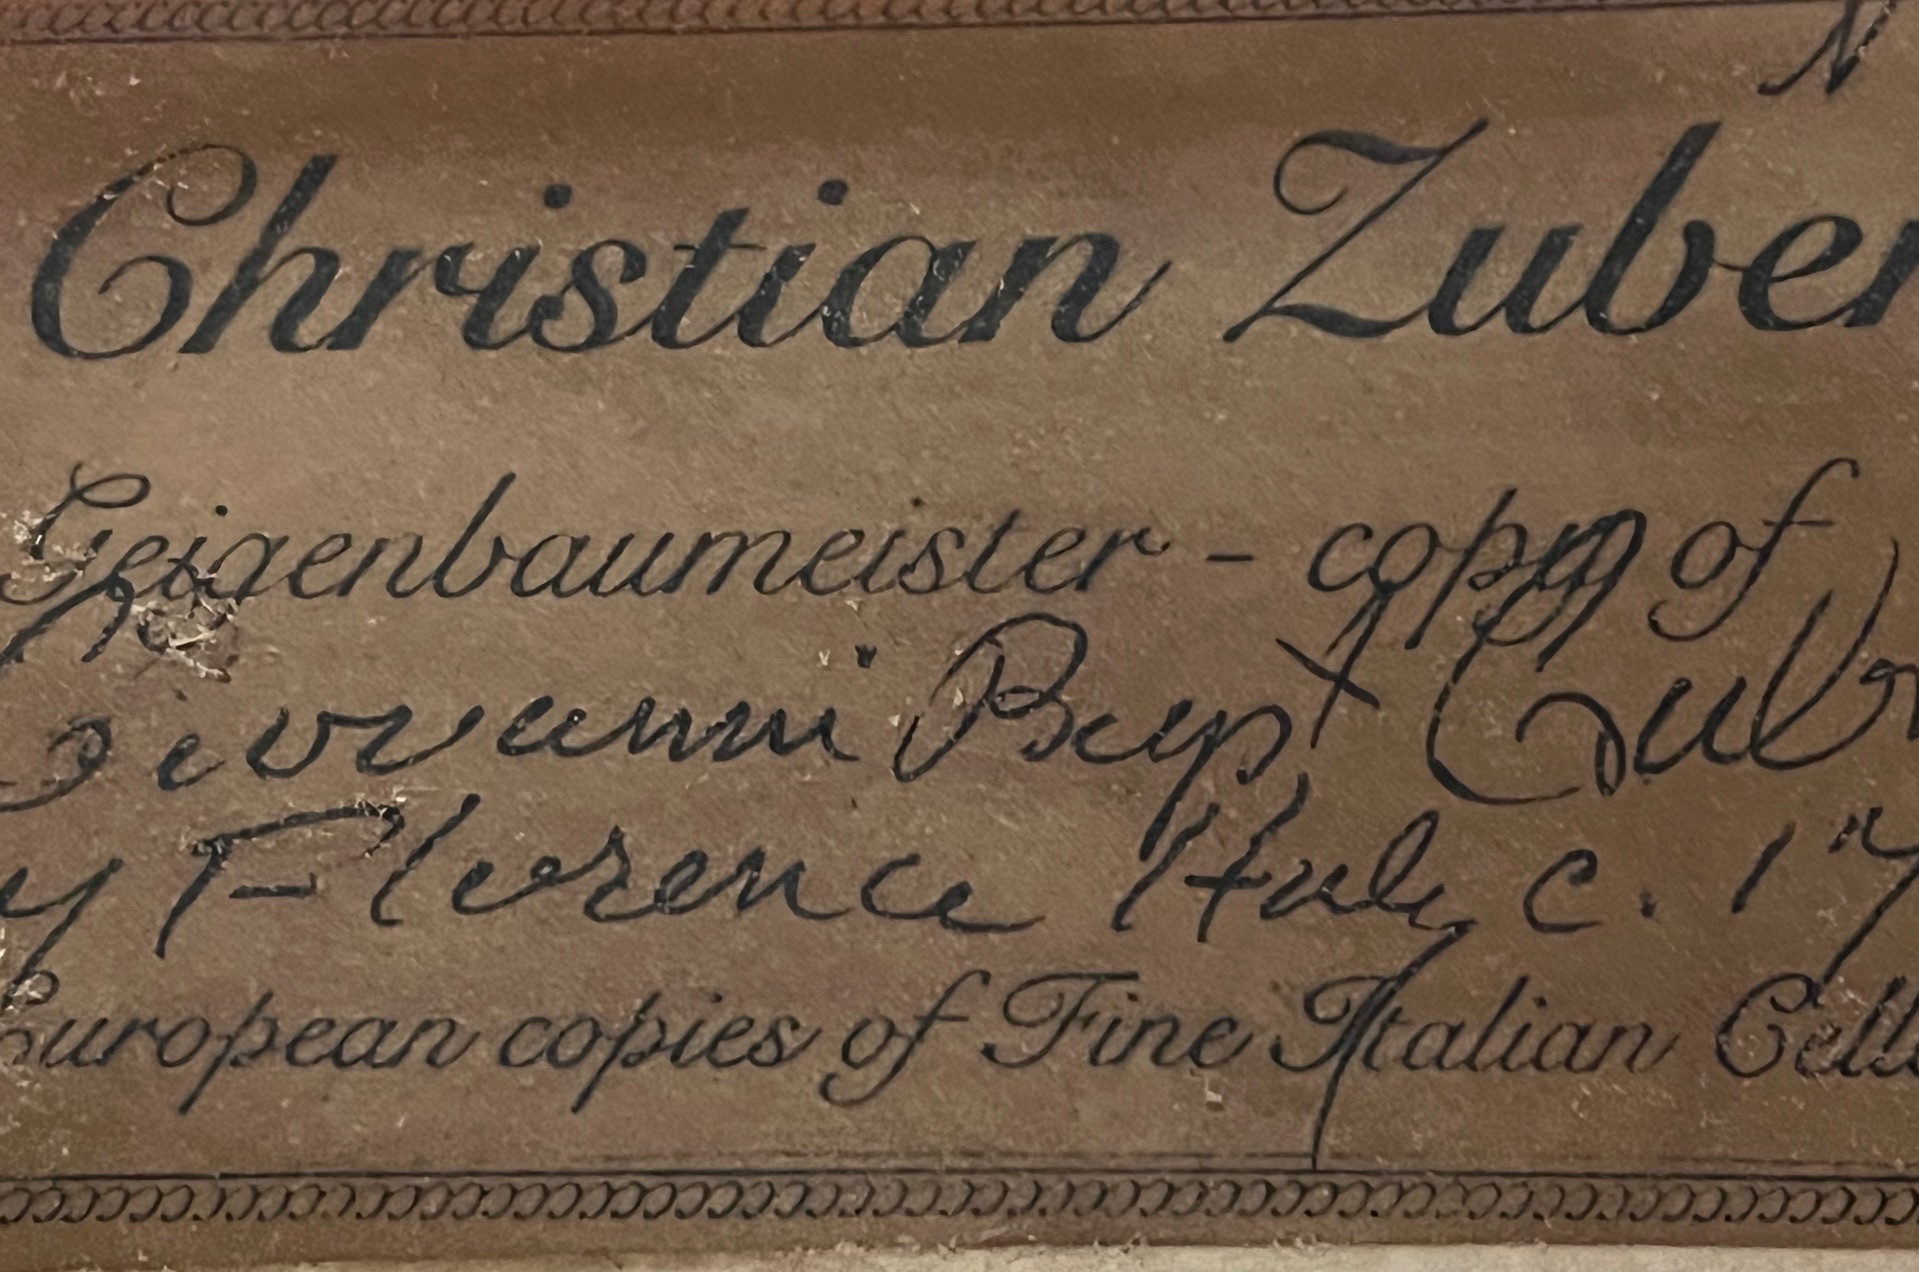 N
Christian Zuber
Geigenbaumeister - copy of
Giovanni Bapt Gabr
y Florence Italy c. 17
European copies of Fine Italian Cell